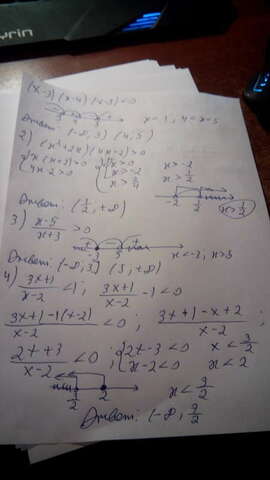 (x-3)(x-4)(x-5)<0
Ответ: (-∞, 3) (4, 5)
2) (x²+2x)(4x-2)>0
x(x+2)>0 x>0 x>-2
4x-2>0 x>-2 x>1/2
x>1/2
-2 1/2 x>1/2
Ответ: (1/2, +∞)
3) (x-5)/(x+3) >0
-3 5 x<-3, x>5
Ответ: (-∞, 3) (5, +∞)
4) (3x+1)/(x-2) <1; (3x+1)/(x-2) -1<0
(3x+1-1(x-2))/(x-2) <0; (3x+1-x+2)/(x-2);
(2x+3)/(x-2) <0; 2x-3<0 x<3/2
x-2<0 x<2
3/2 2 x<3/2
Ответ: (-∞, 3/2)